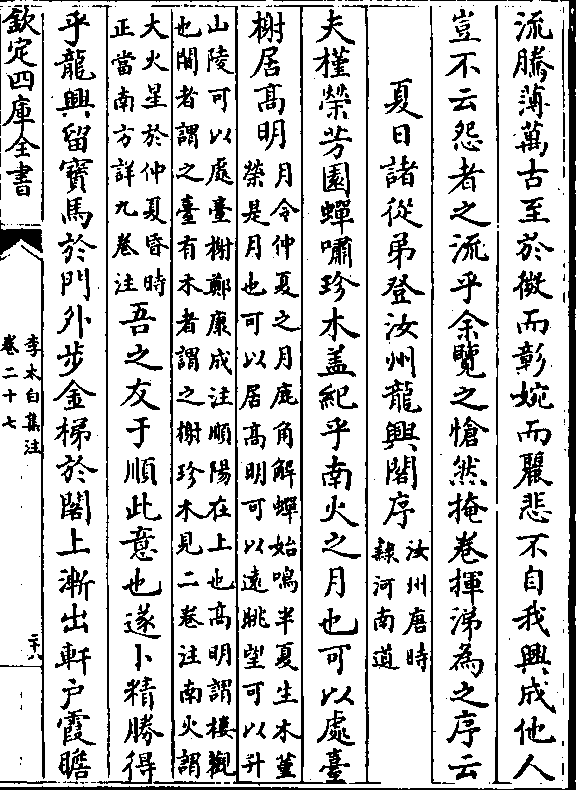 流騰薄萬古至於徵而彰婉而麗悲不自我興成他人
豈不云怨者之流乎余覽之愴然掩卷揮涕為之序云
夏日諸從弟登汝州龍興閣序
汝州唐時
隸河南道
夫槿榮芳園蟬嘯珍木盖紀乎南火之月也可以處臺
榭居高明
月令仲夏之月鹿角解蟬始鳴半夏生木堇
榮是月也可以居高明可以遠眺望可以升
山陵可以處臺榭鄭康成注順陽在上也高明謂樓觀
也闍者謂之臺有木者謂之榭珍木見二卷注南火謂
大火星於仲夏昏時
正當南方詳九卷注
吾之友于順此意也遂卜精勝得
乎龍興留寶馬於門外步金梯於閣上漸出軒户霞瞻
欽定四庫全書
李太白集注
卷二十七
二十八